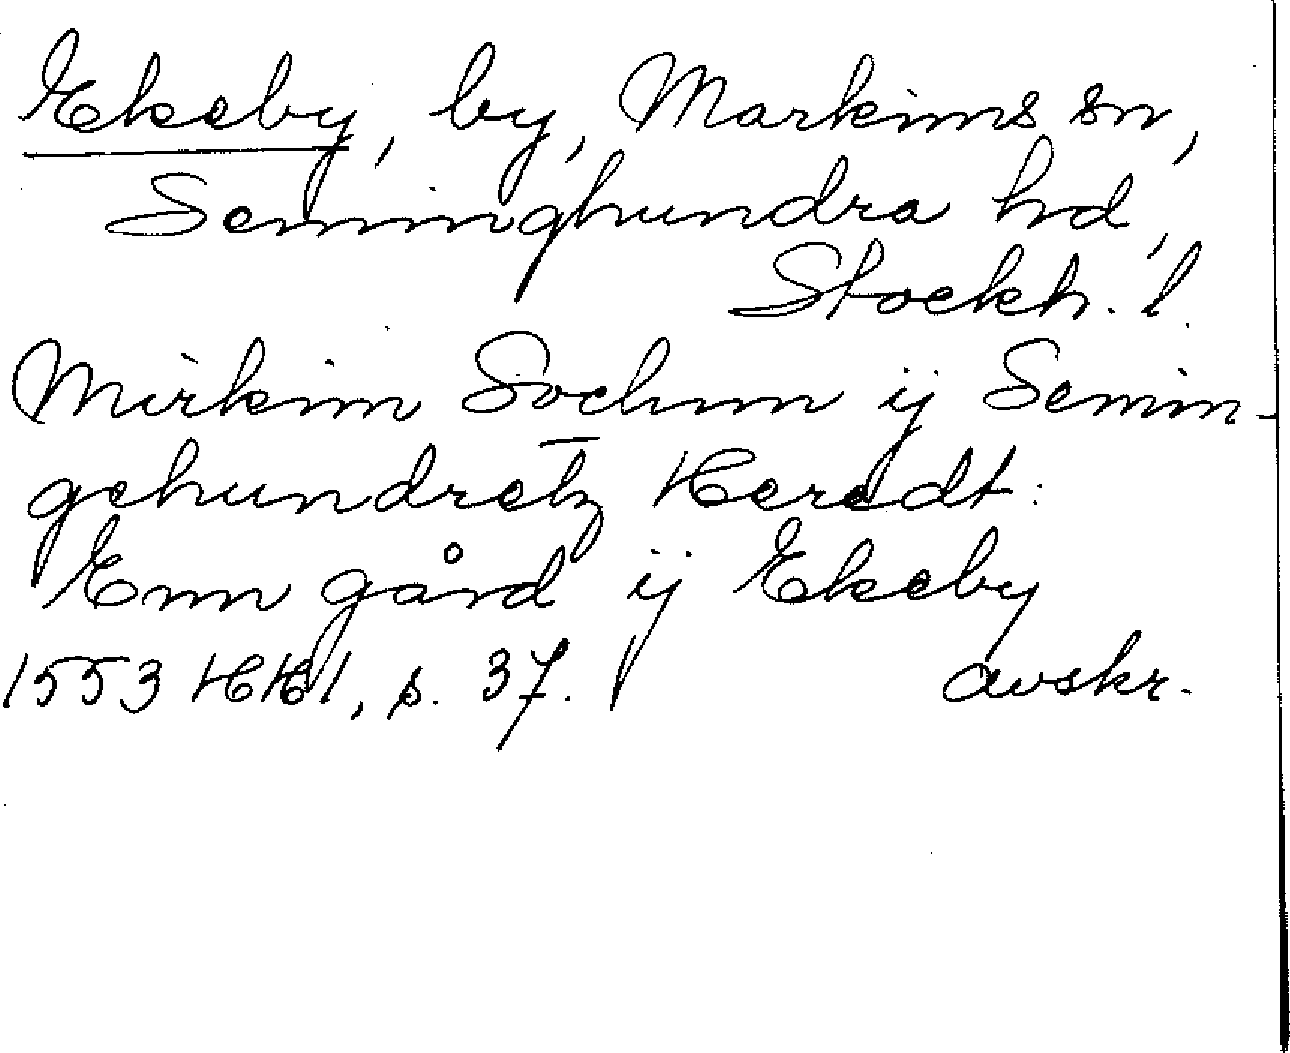 Ekeby, by, Markims sn,
Seminghundra hd,
Stockh. l.
Mirkim Sochnn ij Semin-
gehundretz Heredt:
Enn gård ij Ekeby
1553 HH1, p. 37.
avskr.